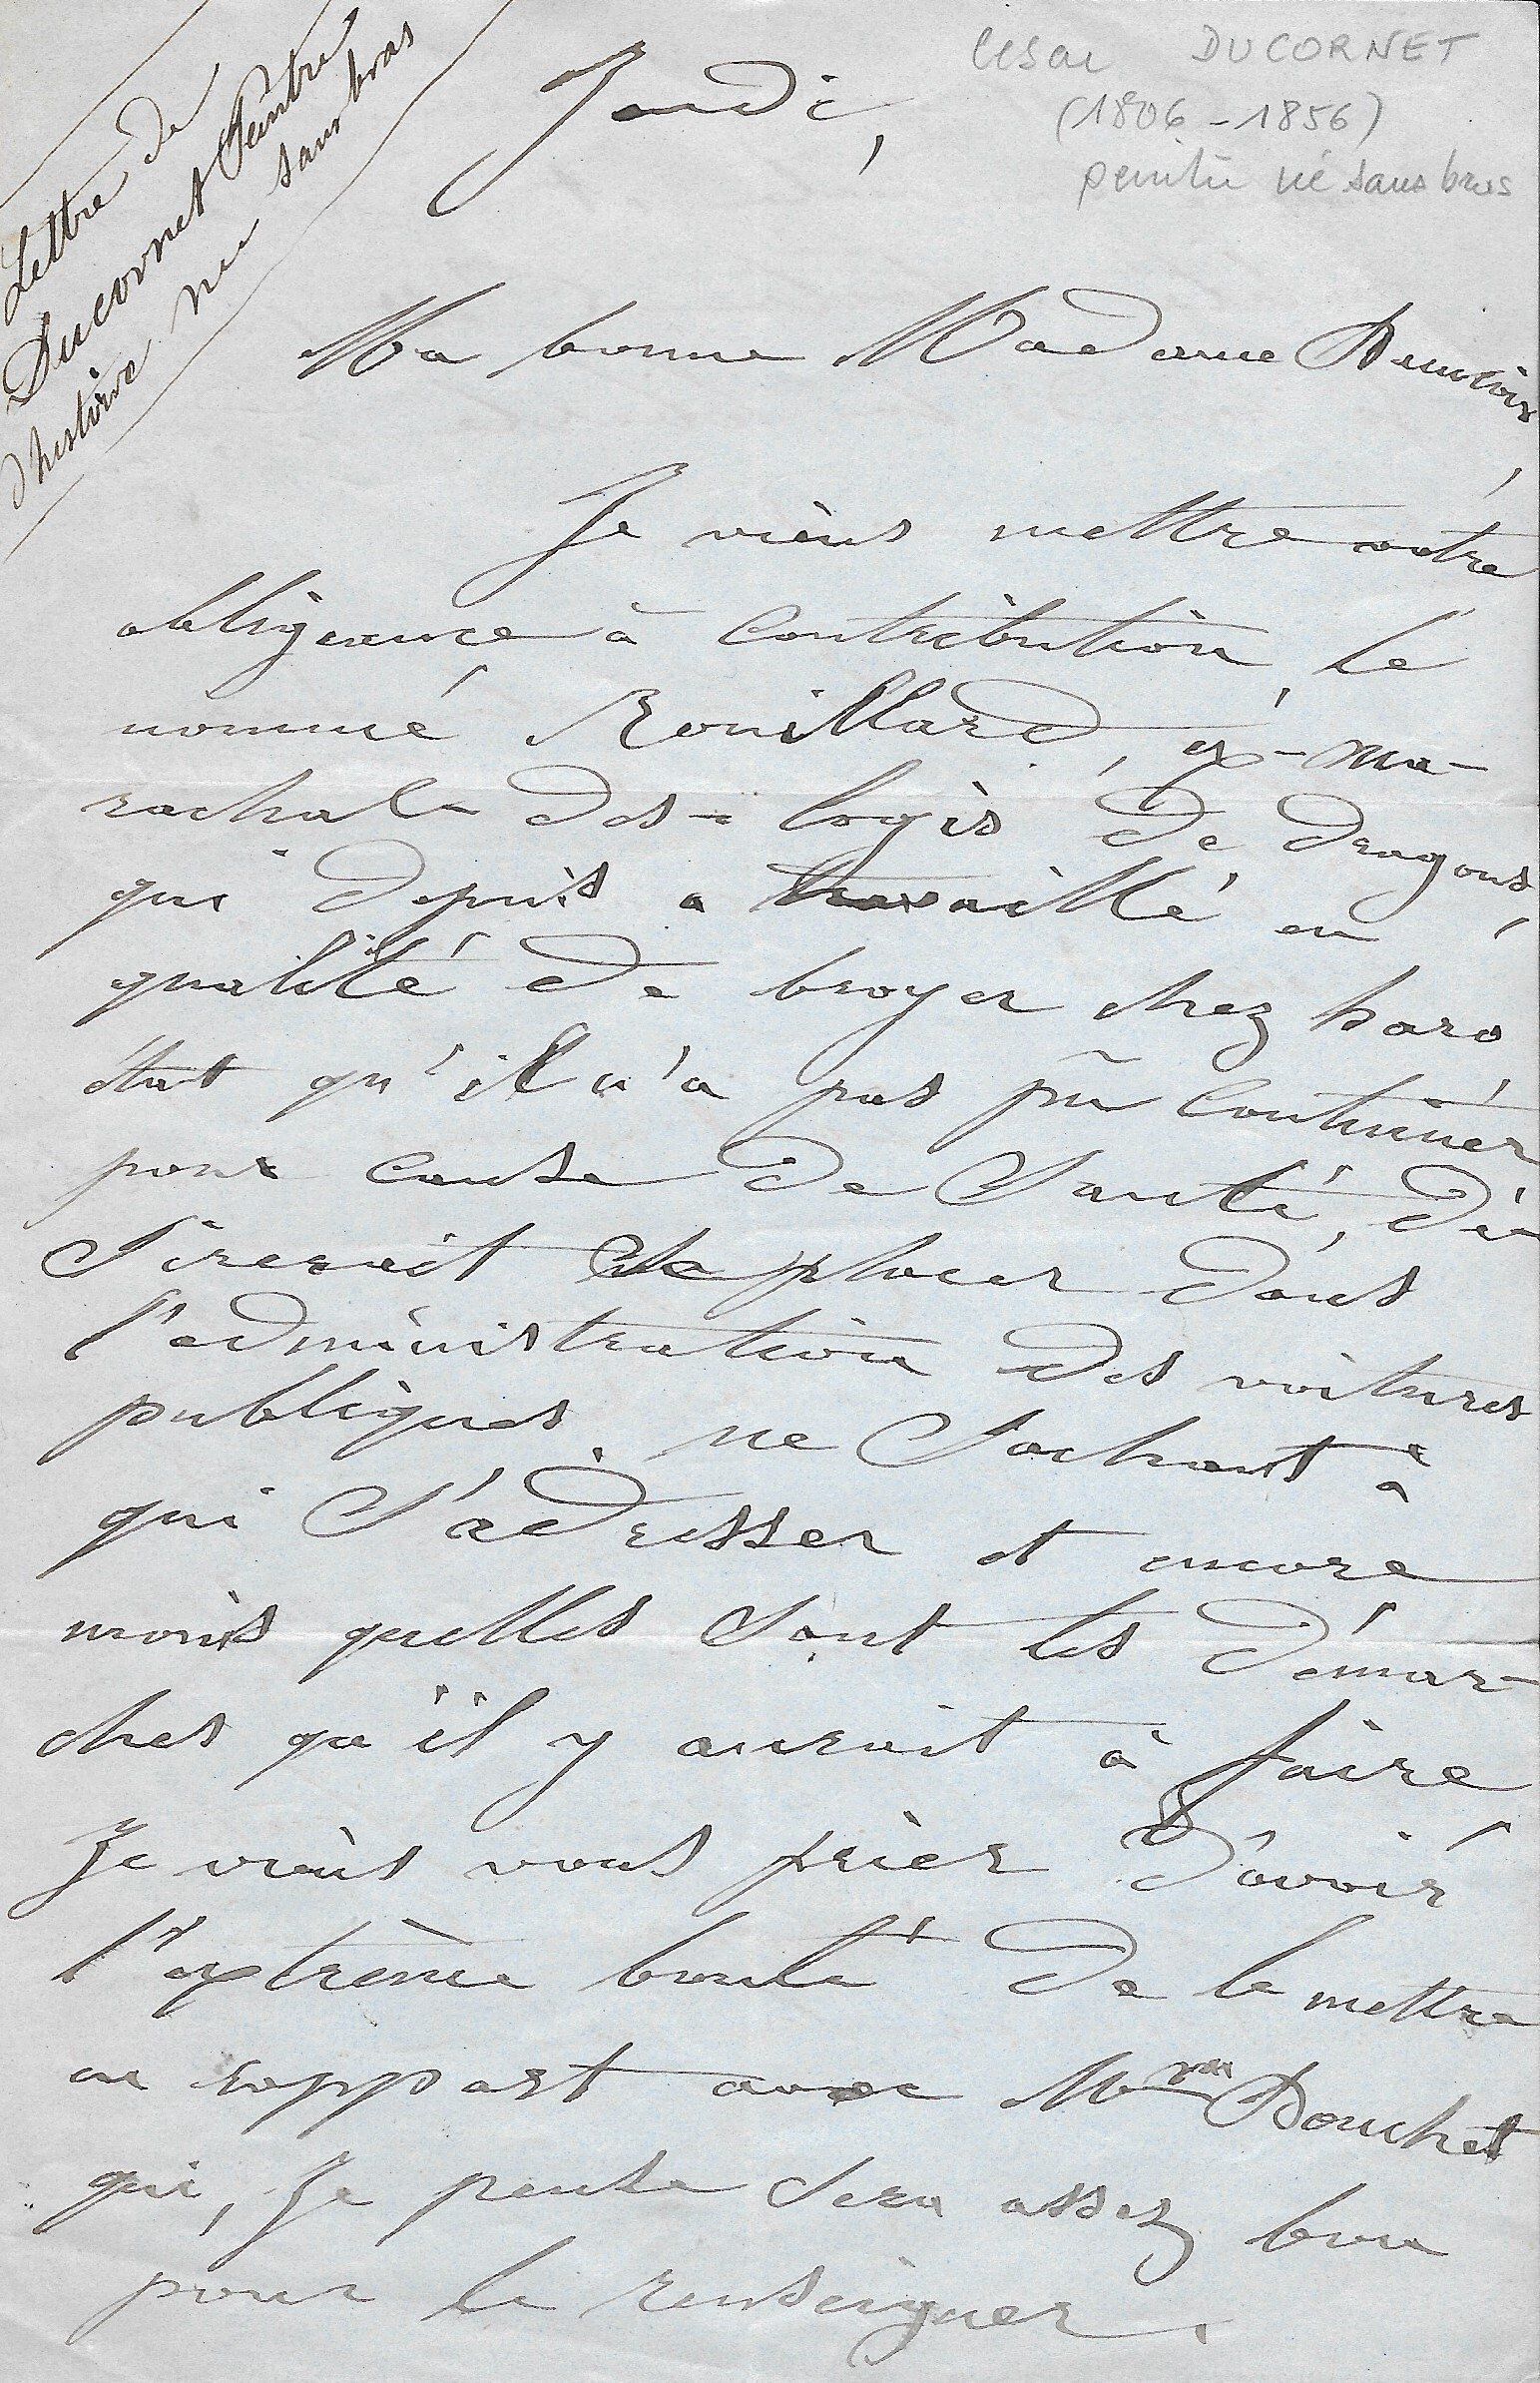 Lettre de
Ducornet Peintre
d'histoire né sans bras
César DUCORNET
(1806-1856)
peintre né sans bras
Jeudi,
Ma bonne Madame
Je viens mettre votre
obligeance à contribution, le
nommé Rouillard, ex-ma-
rechal-des-logis de dragons,
qui depuis a travaillé en
qualité de broyer chez haro
état qu'il n'a pas pû continuer
pour cause de Santé, dé-
Sirerait Se placer dans
l'administration des voitures
publiques. ne Sachant à
qui S'adresser et encore
moins quelles Sont les démar-
ches qu'il y aurait à faire
Je viens vous prier d'avoir
l'extrême bonté de le mettre
en rapport avec Bouchet
qui, Je pense Sera assez bon
pour le renseigner.